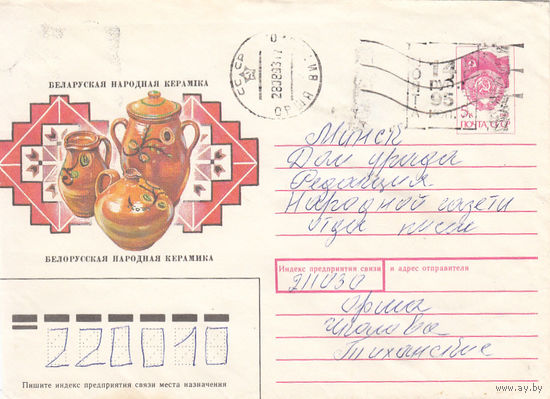 БЕЛАРУСКАЯ НАРОДНАЯ КЕРАМІКА
БЕЛОРУССКАЯ НАРОДНАЯ КЕРАМИКА
СССР
ОРША
28 08 93
5к
ПОЧТА СССР
Минск
Дом урада
Редакция
Народной газеты
отдел писем
Индекс предприятия связи и адрес отправителя
211030
Орша
220010
Пишите индекс предприятия связи места назначения
www.ay.by